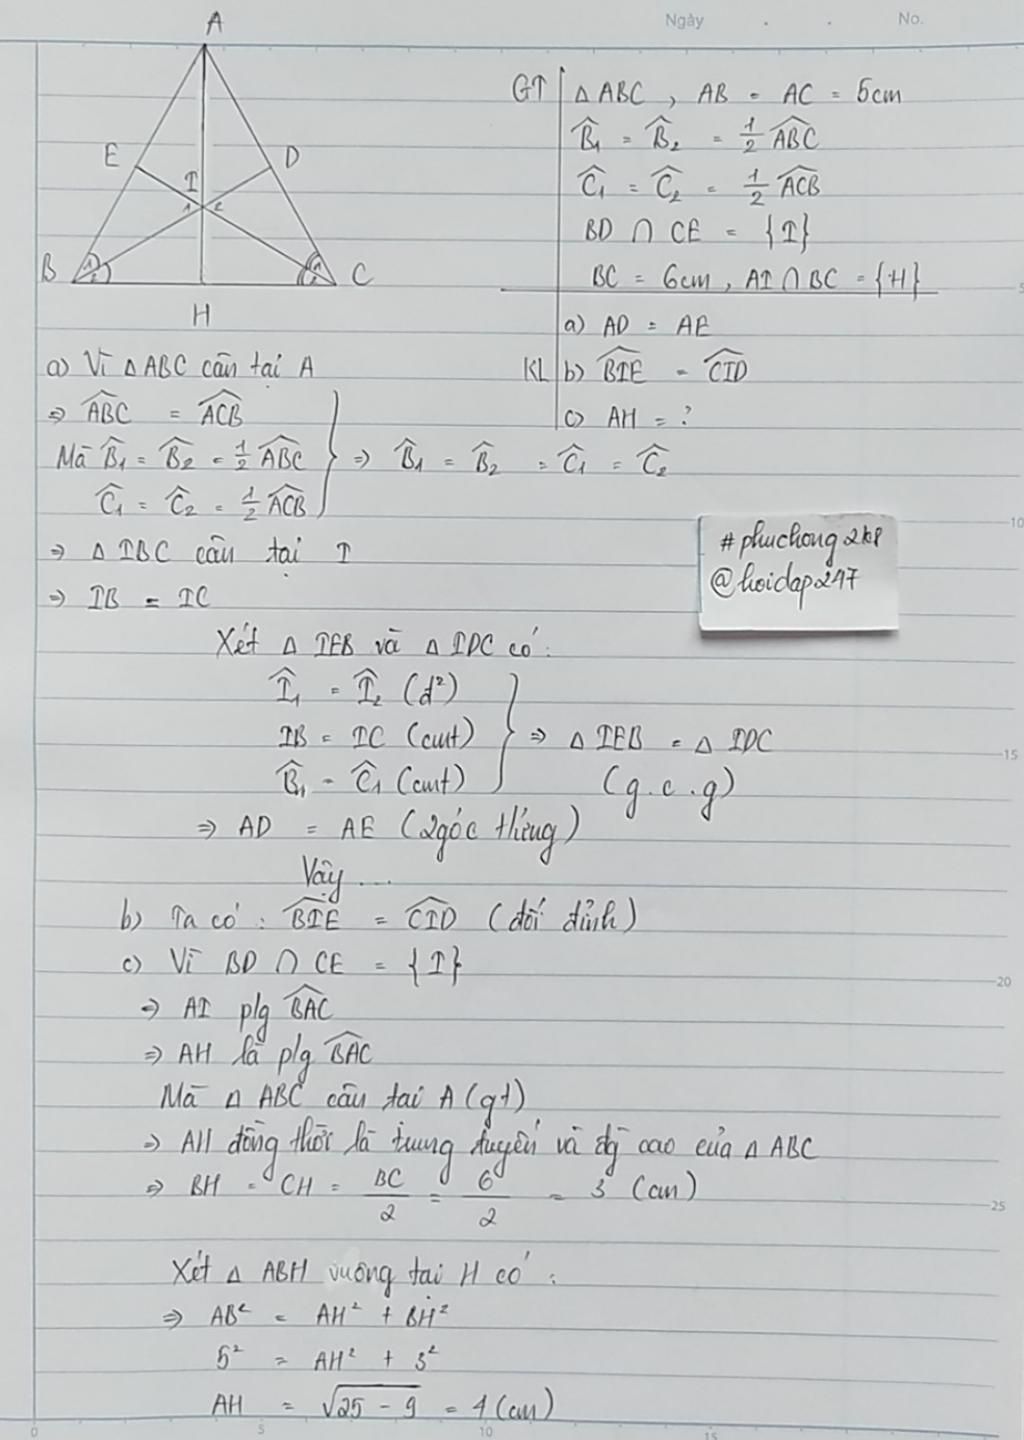 Ngày . . No.
A
E
D
I
1 2
B 1 2
1 2 C
H
GT | △ABC, AB = AC = 5cm
B̂₁ = B̂₂ = 1/2 \widehat{ABC}
Ĉ₁ = Ĉ₂ = 1/2 \widehat{ACB}
BD ∩ CE = {I}
BC = 6cm, AI ∩ BC = {H}
a) AD = AE
KL | b) \widehat{BIE} = \widehat{CID}
c) AH = ?
a) Vì △ABC cân tại A
⇒ \widehat{ABC} = \widehat{ACB}
Mà B̂₁ = B̂₂ = 1/2 \widehat{ABC} } ⇒ B̂₁ = B̂₂ = Ĉ₁ = Ĉ₂
Ĉ₁ = Ĉ₂ = 1/2 \widehat{ACB}
⇒ △IBC cân tại I
⇒ IB = IC
#phuchong2k8
@hoidap247
Xét △IEB và △IDC có:
Î₁ = Î₂ (đ²)
IB = IC (cmt) } ⇒ △IEB = △IDC
B̂₁ = Ĉ₁ (cmt) (g.c.g)
⇒ AD = AE (2góc t/ứng)
Vậy ...
b) Ta có: \widehat{BIE} = \widehat{CID} (đối đỉnh)
c) Vì BD ∩ CE = {I}
⇒ AI p/g \widehat{BAC}
⇒ AH là p/g \widehat{BAC}
Mà △ABC cân tại A (gt)
⇒ AH đồng thời là trung tuyến và đg cao của △ABC
⇒ BH = CH = BC/2 = 6/2 = 3 (cm)
Xét △ABH vuông tại H có:
⇒ AB² = AH² + BH²
5² = AH² + 3²
AH = √(25 - 9) = 4 (cm)
5
10
15
20
25
0 5 10 15